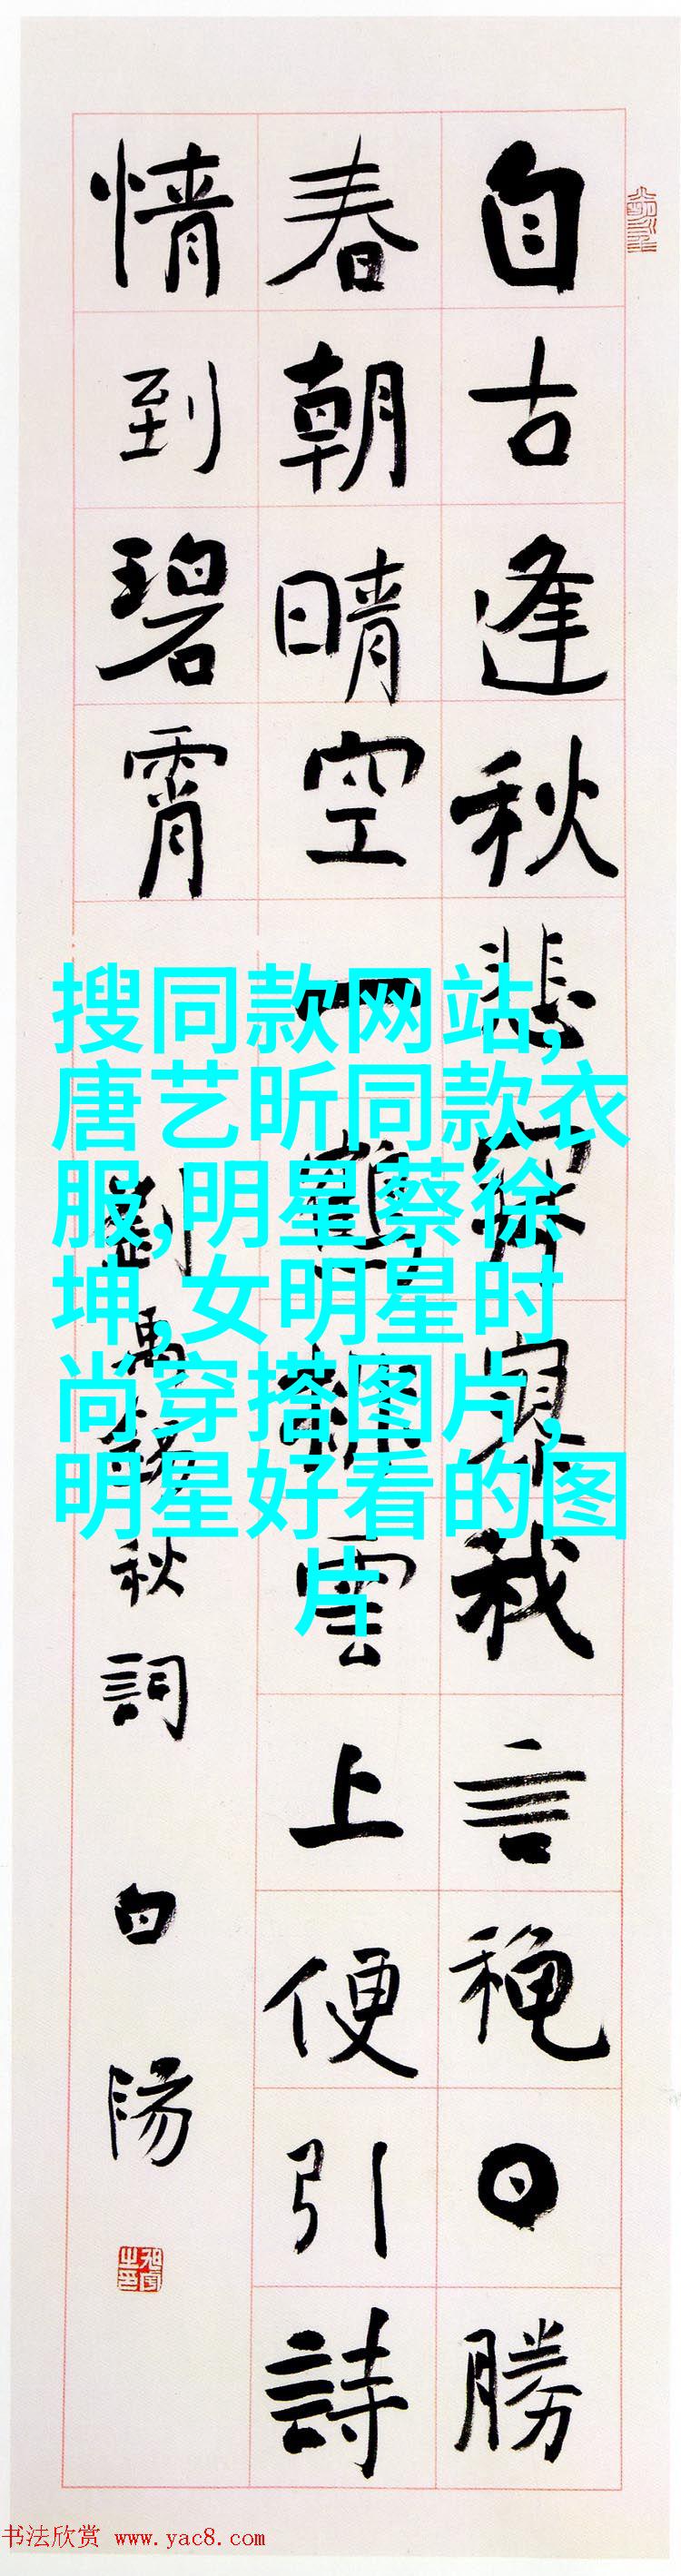 自古逢秋悲寂寥我言秋日勝
春朝晴空一鶴排雲上便引詩
情到碧霄
劉禹錫秋詞
白陽
搜同款网站,
唐艺昕同款衣
服,明星蔡徐
坤,女明星时
尚穿搭图片,
明星好看的图
片
书法欣赏 www.yac8.com